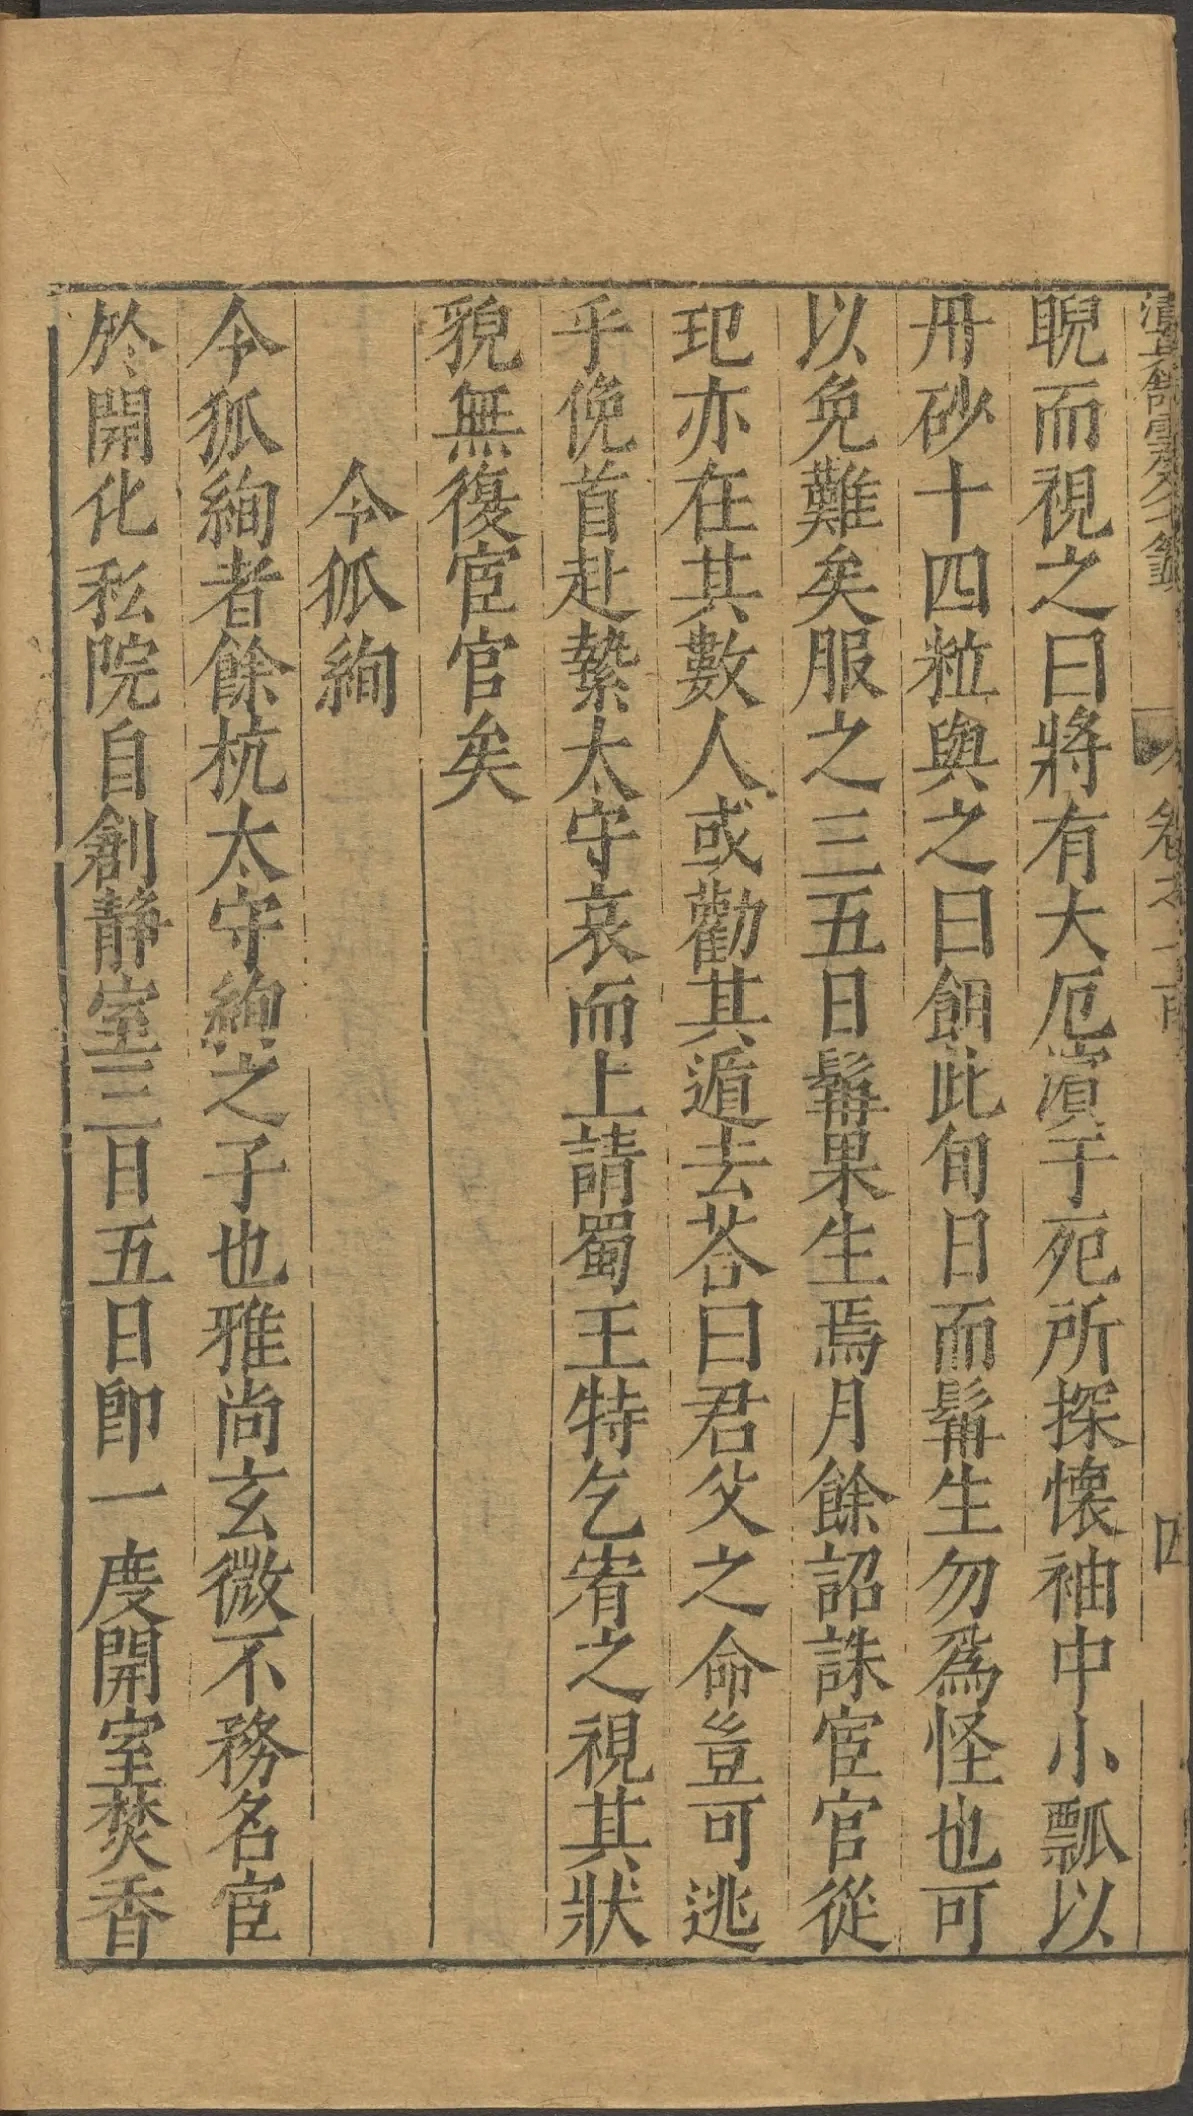 睨而視之曰將有大厄濵于死所探懷袖中小瓢以
丹砂十四粒與之曰餌此旬日而髯生勿爲怪也可
以免難矣服之三五日髯果生焉月餘詔誅宦官從
玘亦在其數人或勸其遁去荅曰君父之命豈可逃
乎俛首赴縶太守哀而上請蜀王特乞宥之視其狀
貌無復宦官矣
令狐絢
令狐絢者餘杭太守絢之子也雅尚玄微不務名宦
於開化私院自創静室三日五日卽一度開室焚香